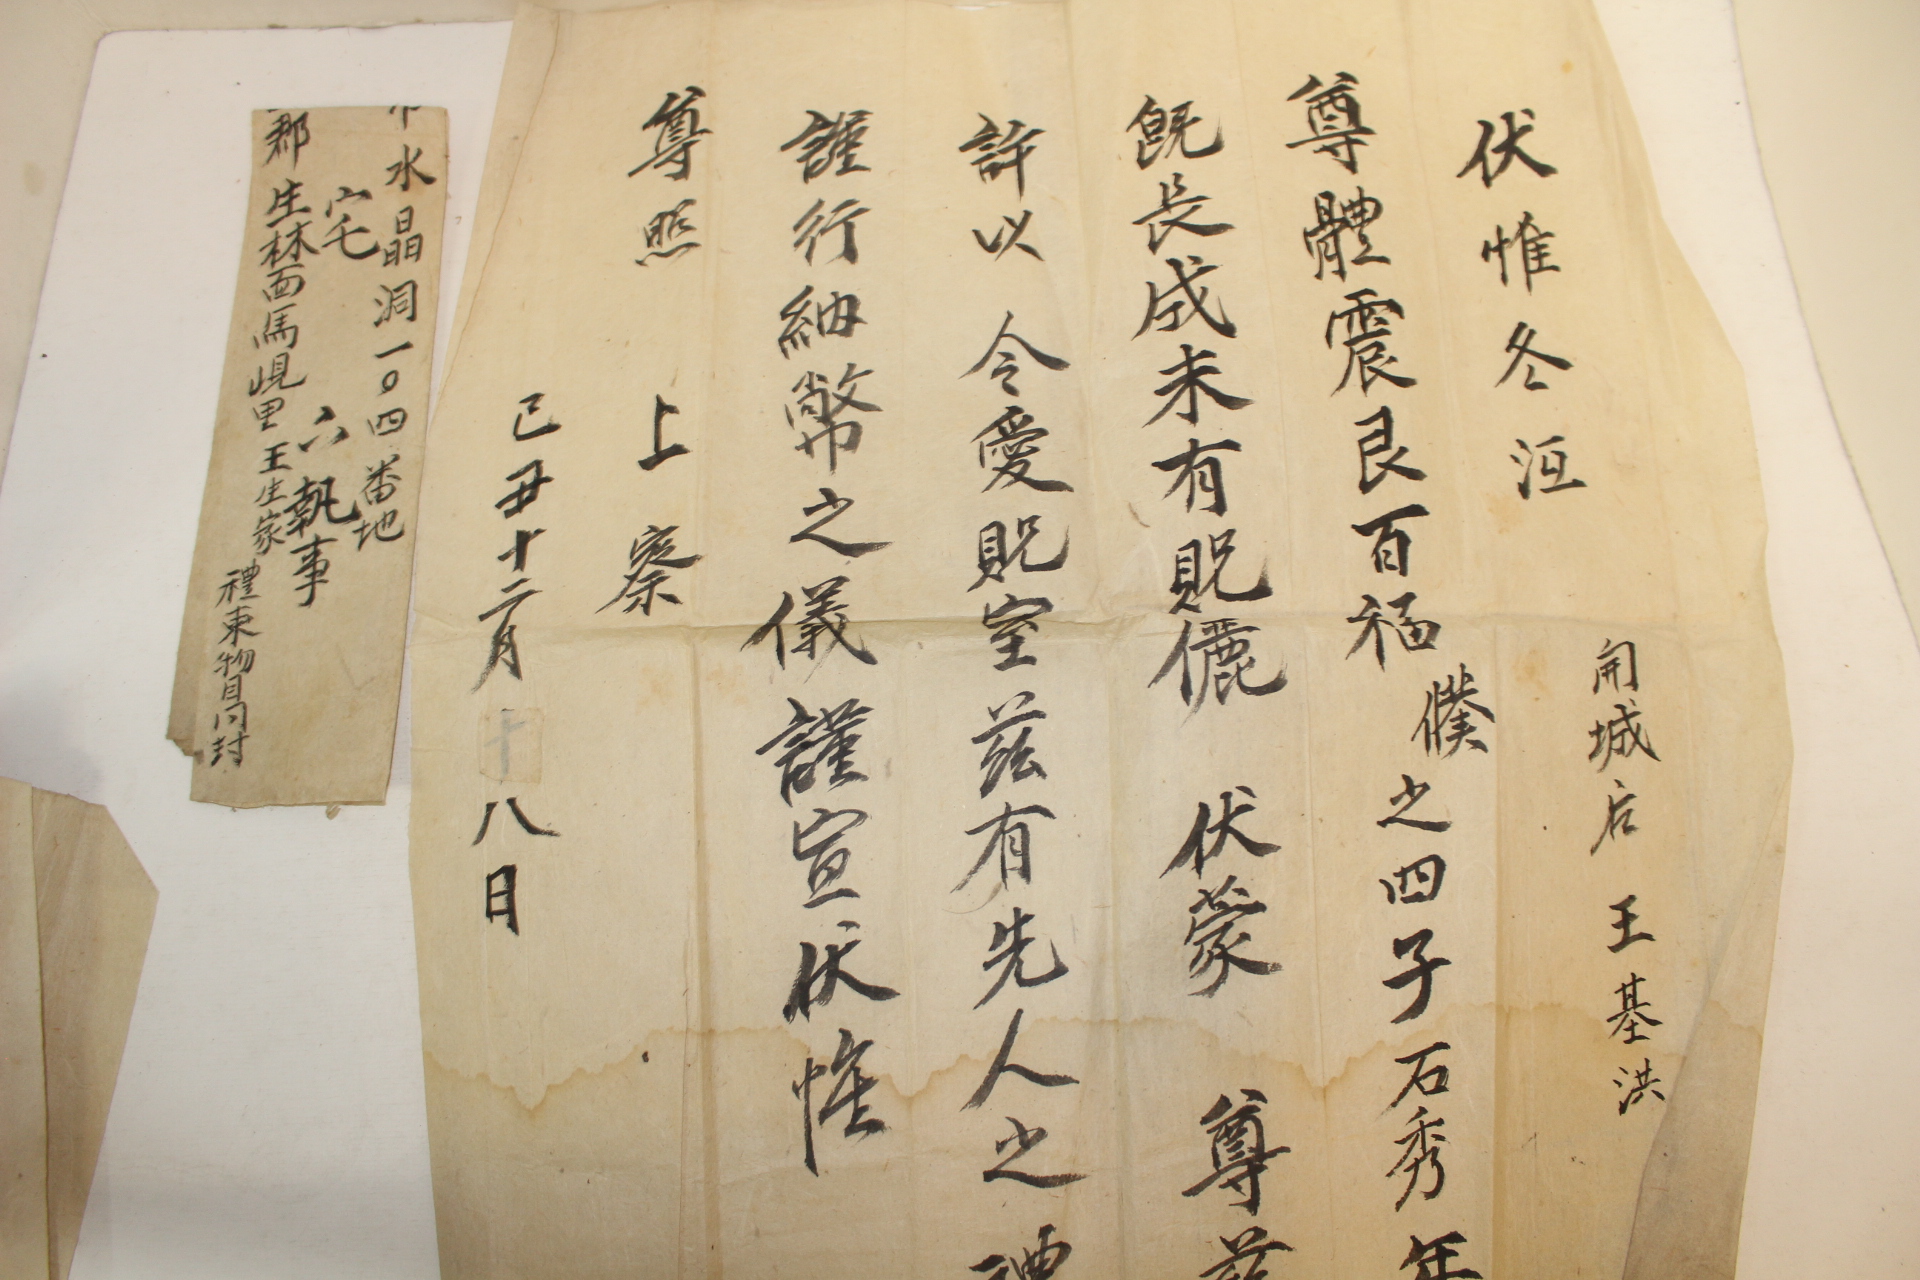 開城后 王基洪
伏惟冬沍
尊體震艮百福 僕之四子石秀年
旣長成未有貺儷 伏蒙 尊慈
許以 令愛貺室玆有先人之禮
謹行納幣之儀謹宣伏惟
尊照 上察
己丑十二月十八日
水晶洞一〇四番地
宅 六 執事
郡 生林面馬峴里 王生家 禮柬物目同封